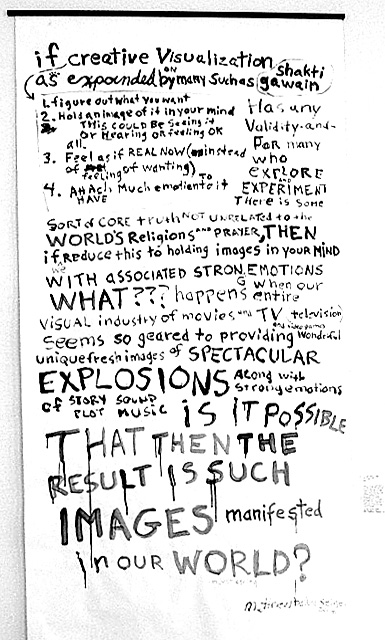 if creative Visualization
as expounded on by many such as shakti gawain
1. figure out what you want
2. Hold an image of it in your mind
THIS COULD BE Seeing it
or Hearing or feeling OR
all.
3. Feel as if REAL NOW (instead
of feeling of wanting)
4. Attach Much emotion to it
HAVE
Has any
Validity and
For many
who
EXPLORE
AND
EXPERIMENT
THere is some
SORT of CORE truth NOT UNRELATED to the
WORLD'S Religions AND PRAYER, THEN
if we REDUCE this to holding images in your MIND
WITH ASSOCIATED STRONG EMOTIONS
WHAT??? happens when our entire
VISUAL industry of movies and TV television
and video games
Seems so geared to providing Wonderful
unique fresh images of SPECTACULAR
EXPLOSIONS Along with strong emotions
of STORY SOUND PLOT MUSIC iS iT POSSIBLE
THAT THEN THE
RESULT IS SUCH
IMAGES manifested
in OUR WORLD?